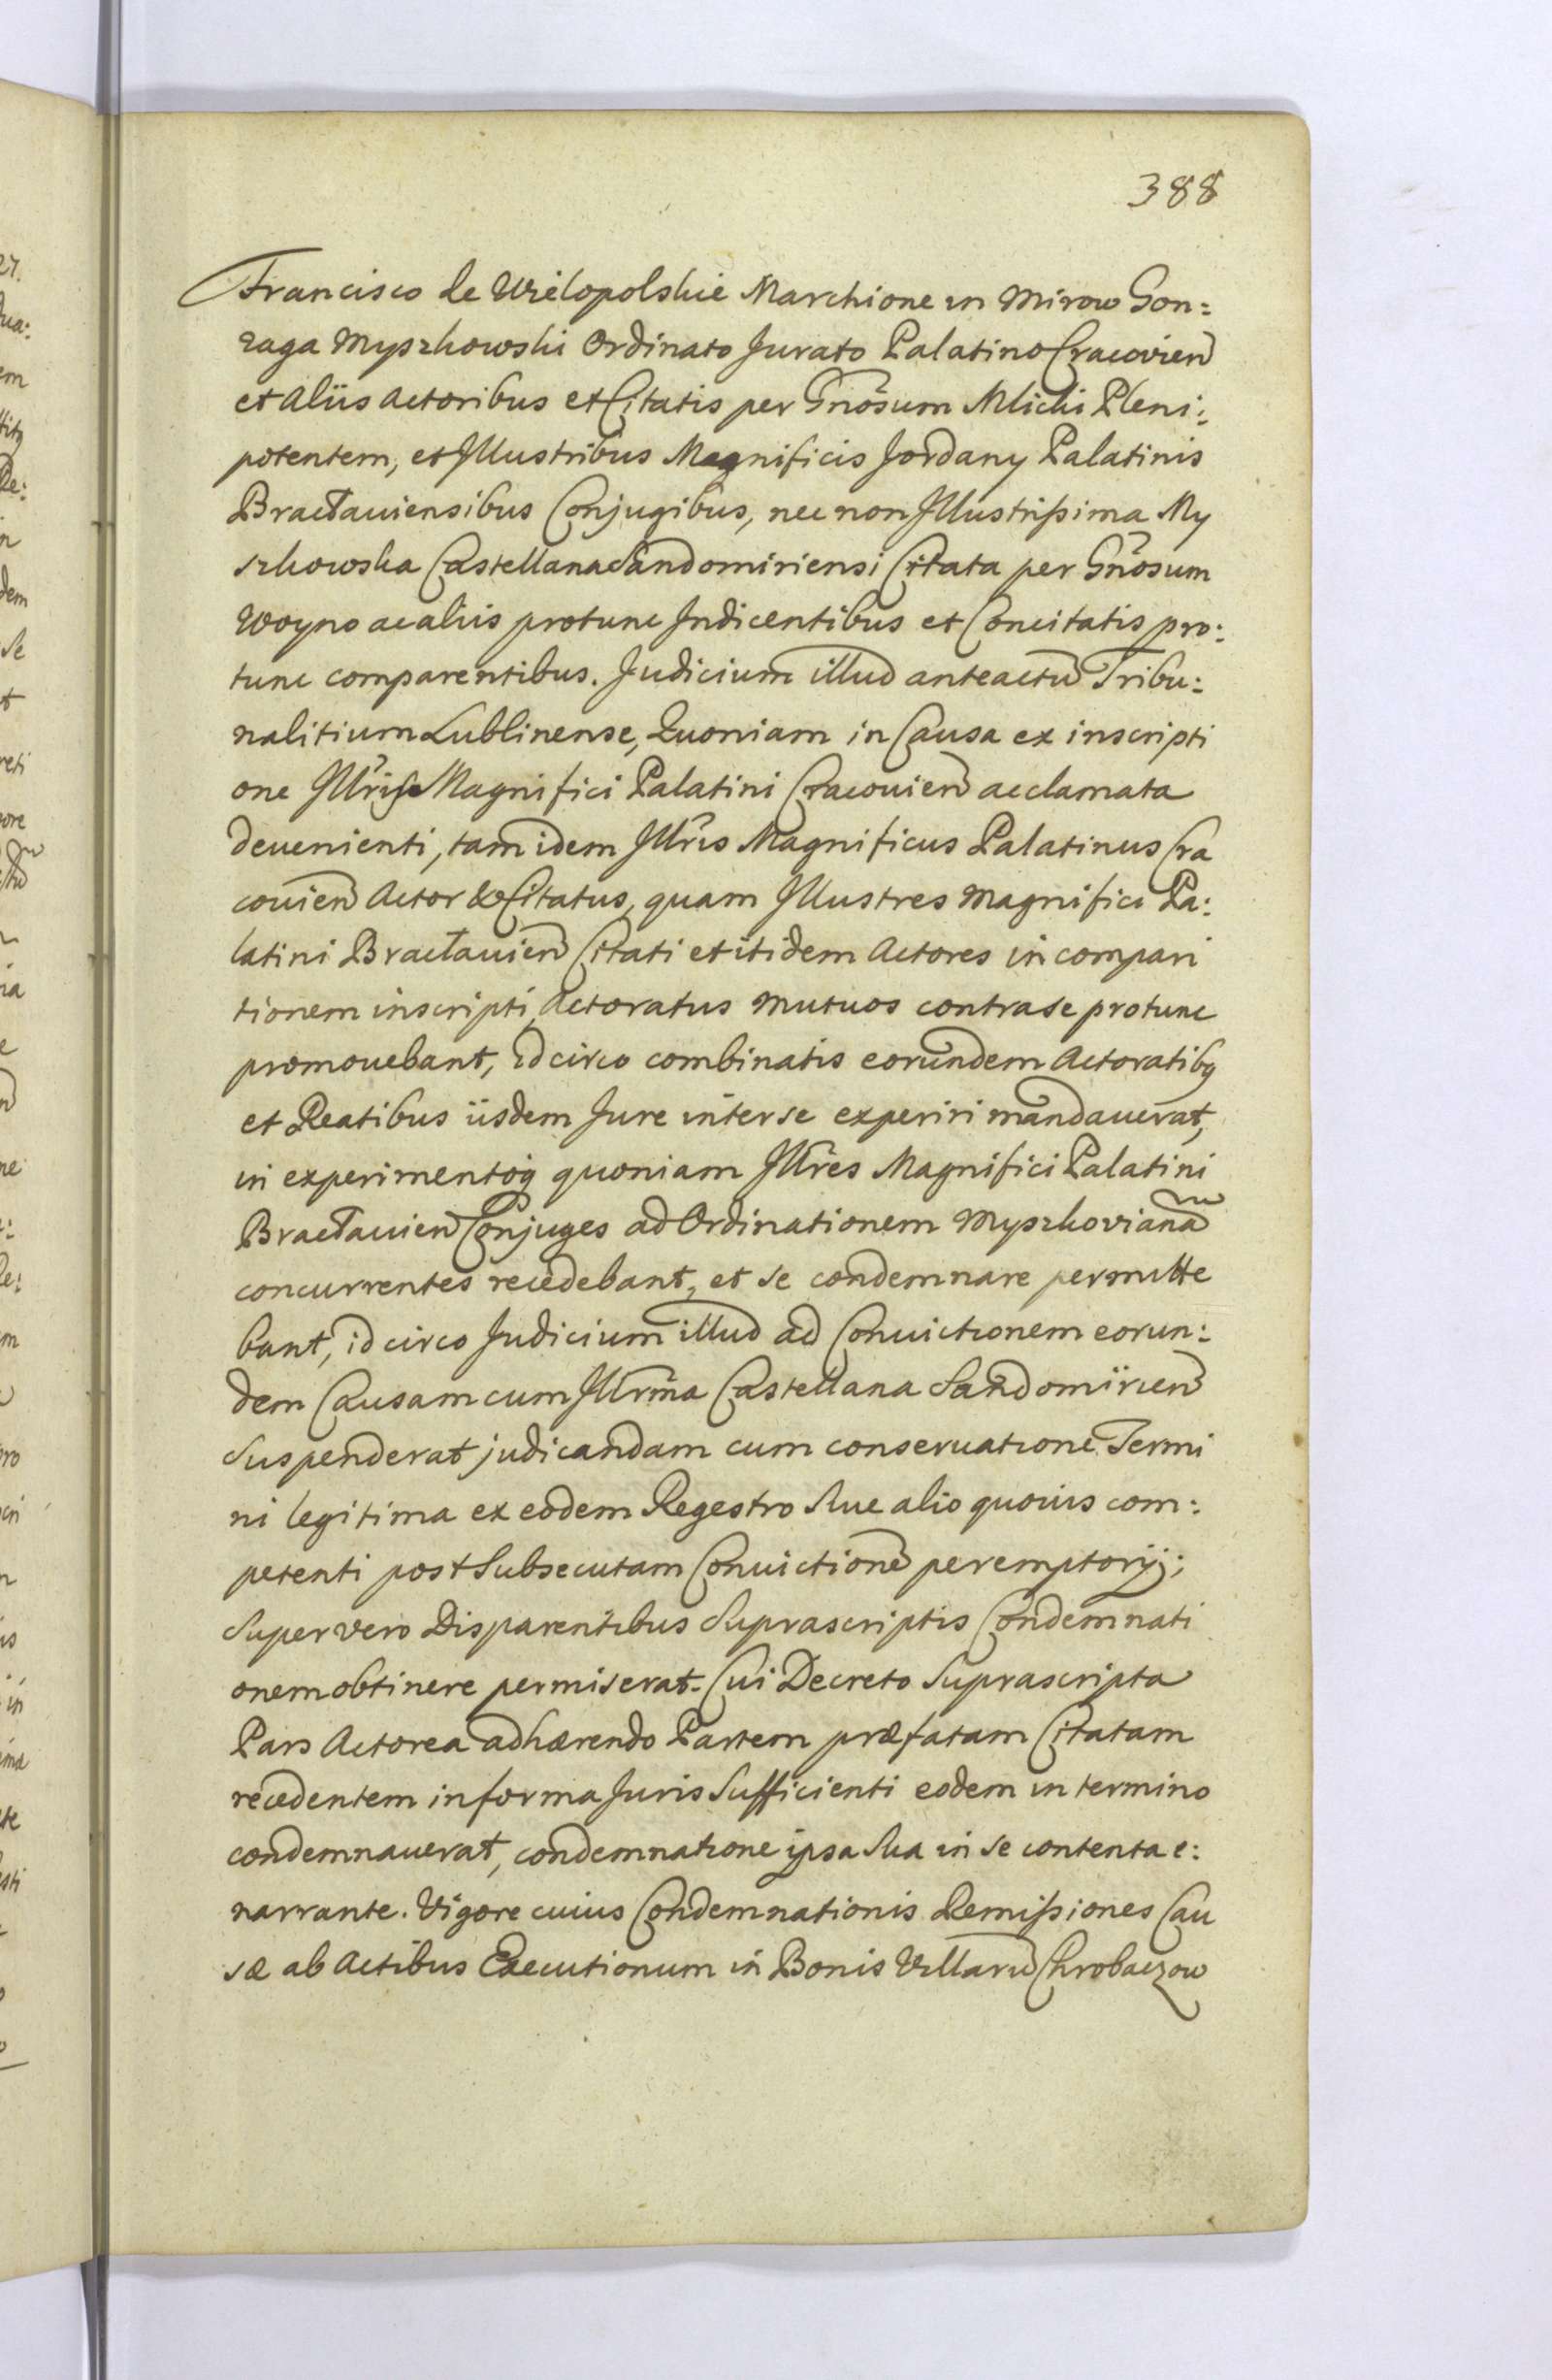 388
Francisco de Wielopolskie Marchione in Mirow Gon:
zaga Myszkowski Ordinato Jurato Palatino Cracovien
et Aliis Actoribus et Citatis per Gnosum Mlicki Pleni:
potentem, et Illustribus Magnificis Jordany Palatinis
Bractauiensibus Conjugibus, nec non Illustrissima My
szkowska Castellana Sandomiriensi Citata per Gnosum
Woyno ac aliis protunc Indicentibus et Concitatis pro:
tunc comparentibus. Judicium illud anteactu Tribu:
nalitium Lublinense, Quoniam in Causa ex inscripti
one Illris Magnifici Palatini Cracouien acclamata
deuenienti, tam idem Illris Magnificus Palatinus Cra
couien Actor & Citatus, quam Illustres Magnifici Pa:
latini Bractauien Citati et itidem Actores in compari
tionem inscripti, Actoratus mutuos contra se protunc
promouebant, idcirco combinatis eorundem Actoratibq
et Reatibus iisdem Jure inter se experiri mandauerat,
in experimentoq quoniam Illres Magnifici Palatini
Bractauien Conjuges ad Ordinationem Myszkoviana
concurrentes recedebant, et se condemnare permitte
bant, idcirco Judicium illud ad Conuictionem eorun:
dem Causam cum Illrma Castellana Sandomirien
Suspenderat judicandam cum conseruatione Termi
ni legitima ex eodem Regestro siue alio quouis com:
petenti post Subsecutam Conuictione peremptorij;
Super vero Disparentibus Suprascriptis Condemnati
onem obtinere permiserat. Cui Decreto Suprascripta
Pars Actorea adhærendo Partem præfatam Citatam
recedentem in forma Juris Sufficienti eodem in termino
condemnauerat, condemnatione ipsa Sua in se contenta e:
narrante. Vigore cuius Condemnationis Remissiones Cau
sæ ab Actibus Executionum in Bonis Villaru Chrobaczow